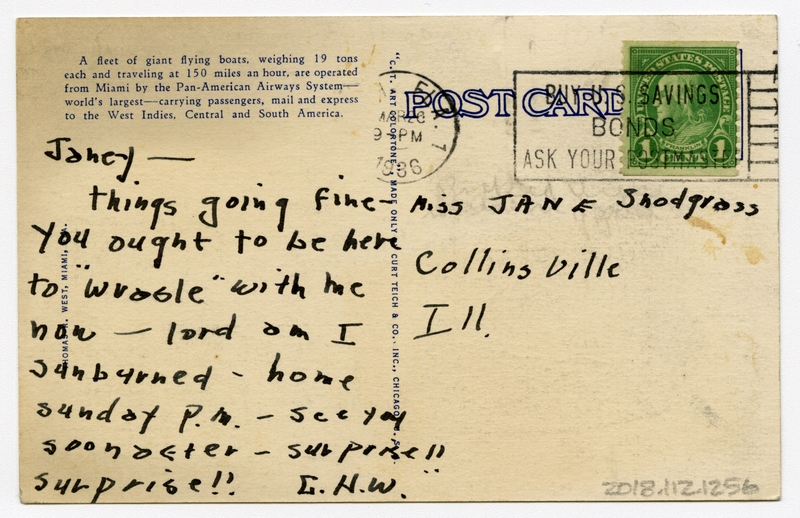 A fleet of giant flying boats, weighing 19 tons
each and traveling at 150 miles an hour, are operated
from Miami by the Pan-American Airways System—
world's largest—carrying passengers, mail and express
to the West Indies, Central and South America.
Janey —
things going fine-
You ought to be here
to "wrasle" with me
now — lord am I
sunburned - home
sunday P.M. - see you
soon after - surprise!!
surprise!!
.H.W."
"C.T. ART COLORTONE" MADE ONLY CURT TEICH & CO., INC., CHICAGO
WEST, MIAMI,
POST CARD
MAR 26
9 PM
1936
BUY U.S. SAVINGS
BONDS
ASK YOUR
UNITED STATES POSTAGE
FRANKLIN
1 1
Miss JANE Snodgrass
Collinsville
Ill.
2018.112.1256